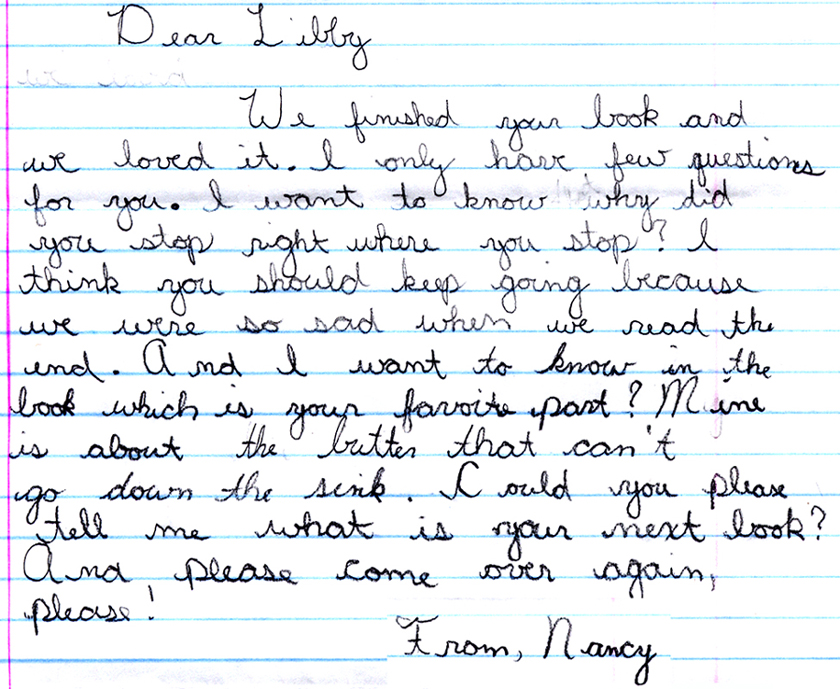 Dear Libby
We finished your book and
we loved it. I only have few questions
for you. I want to know why did
you stop right where you stop? I
think you should keep going because
we were so sad when we read the
end. And I want to know in the
book which is your favoite part? Mine
is about the butter that can't
go down the sink. Could you please
tell me what is your next book?
And please come over again,
please!
From, Nancy